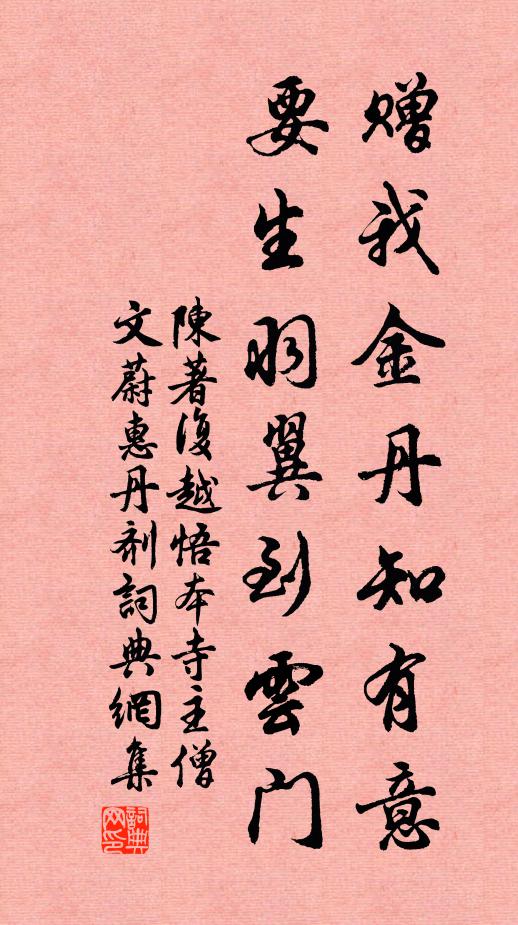 赠我金丹知有意
要生羽翼到雲门
陳著復越悟本寺主僧
文蔚惠丹剂詞典網集
詞典
网印